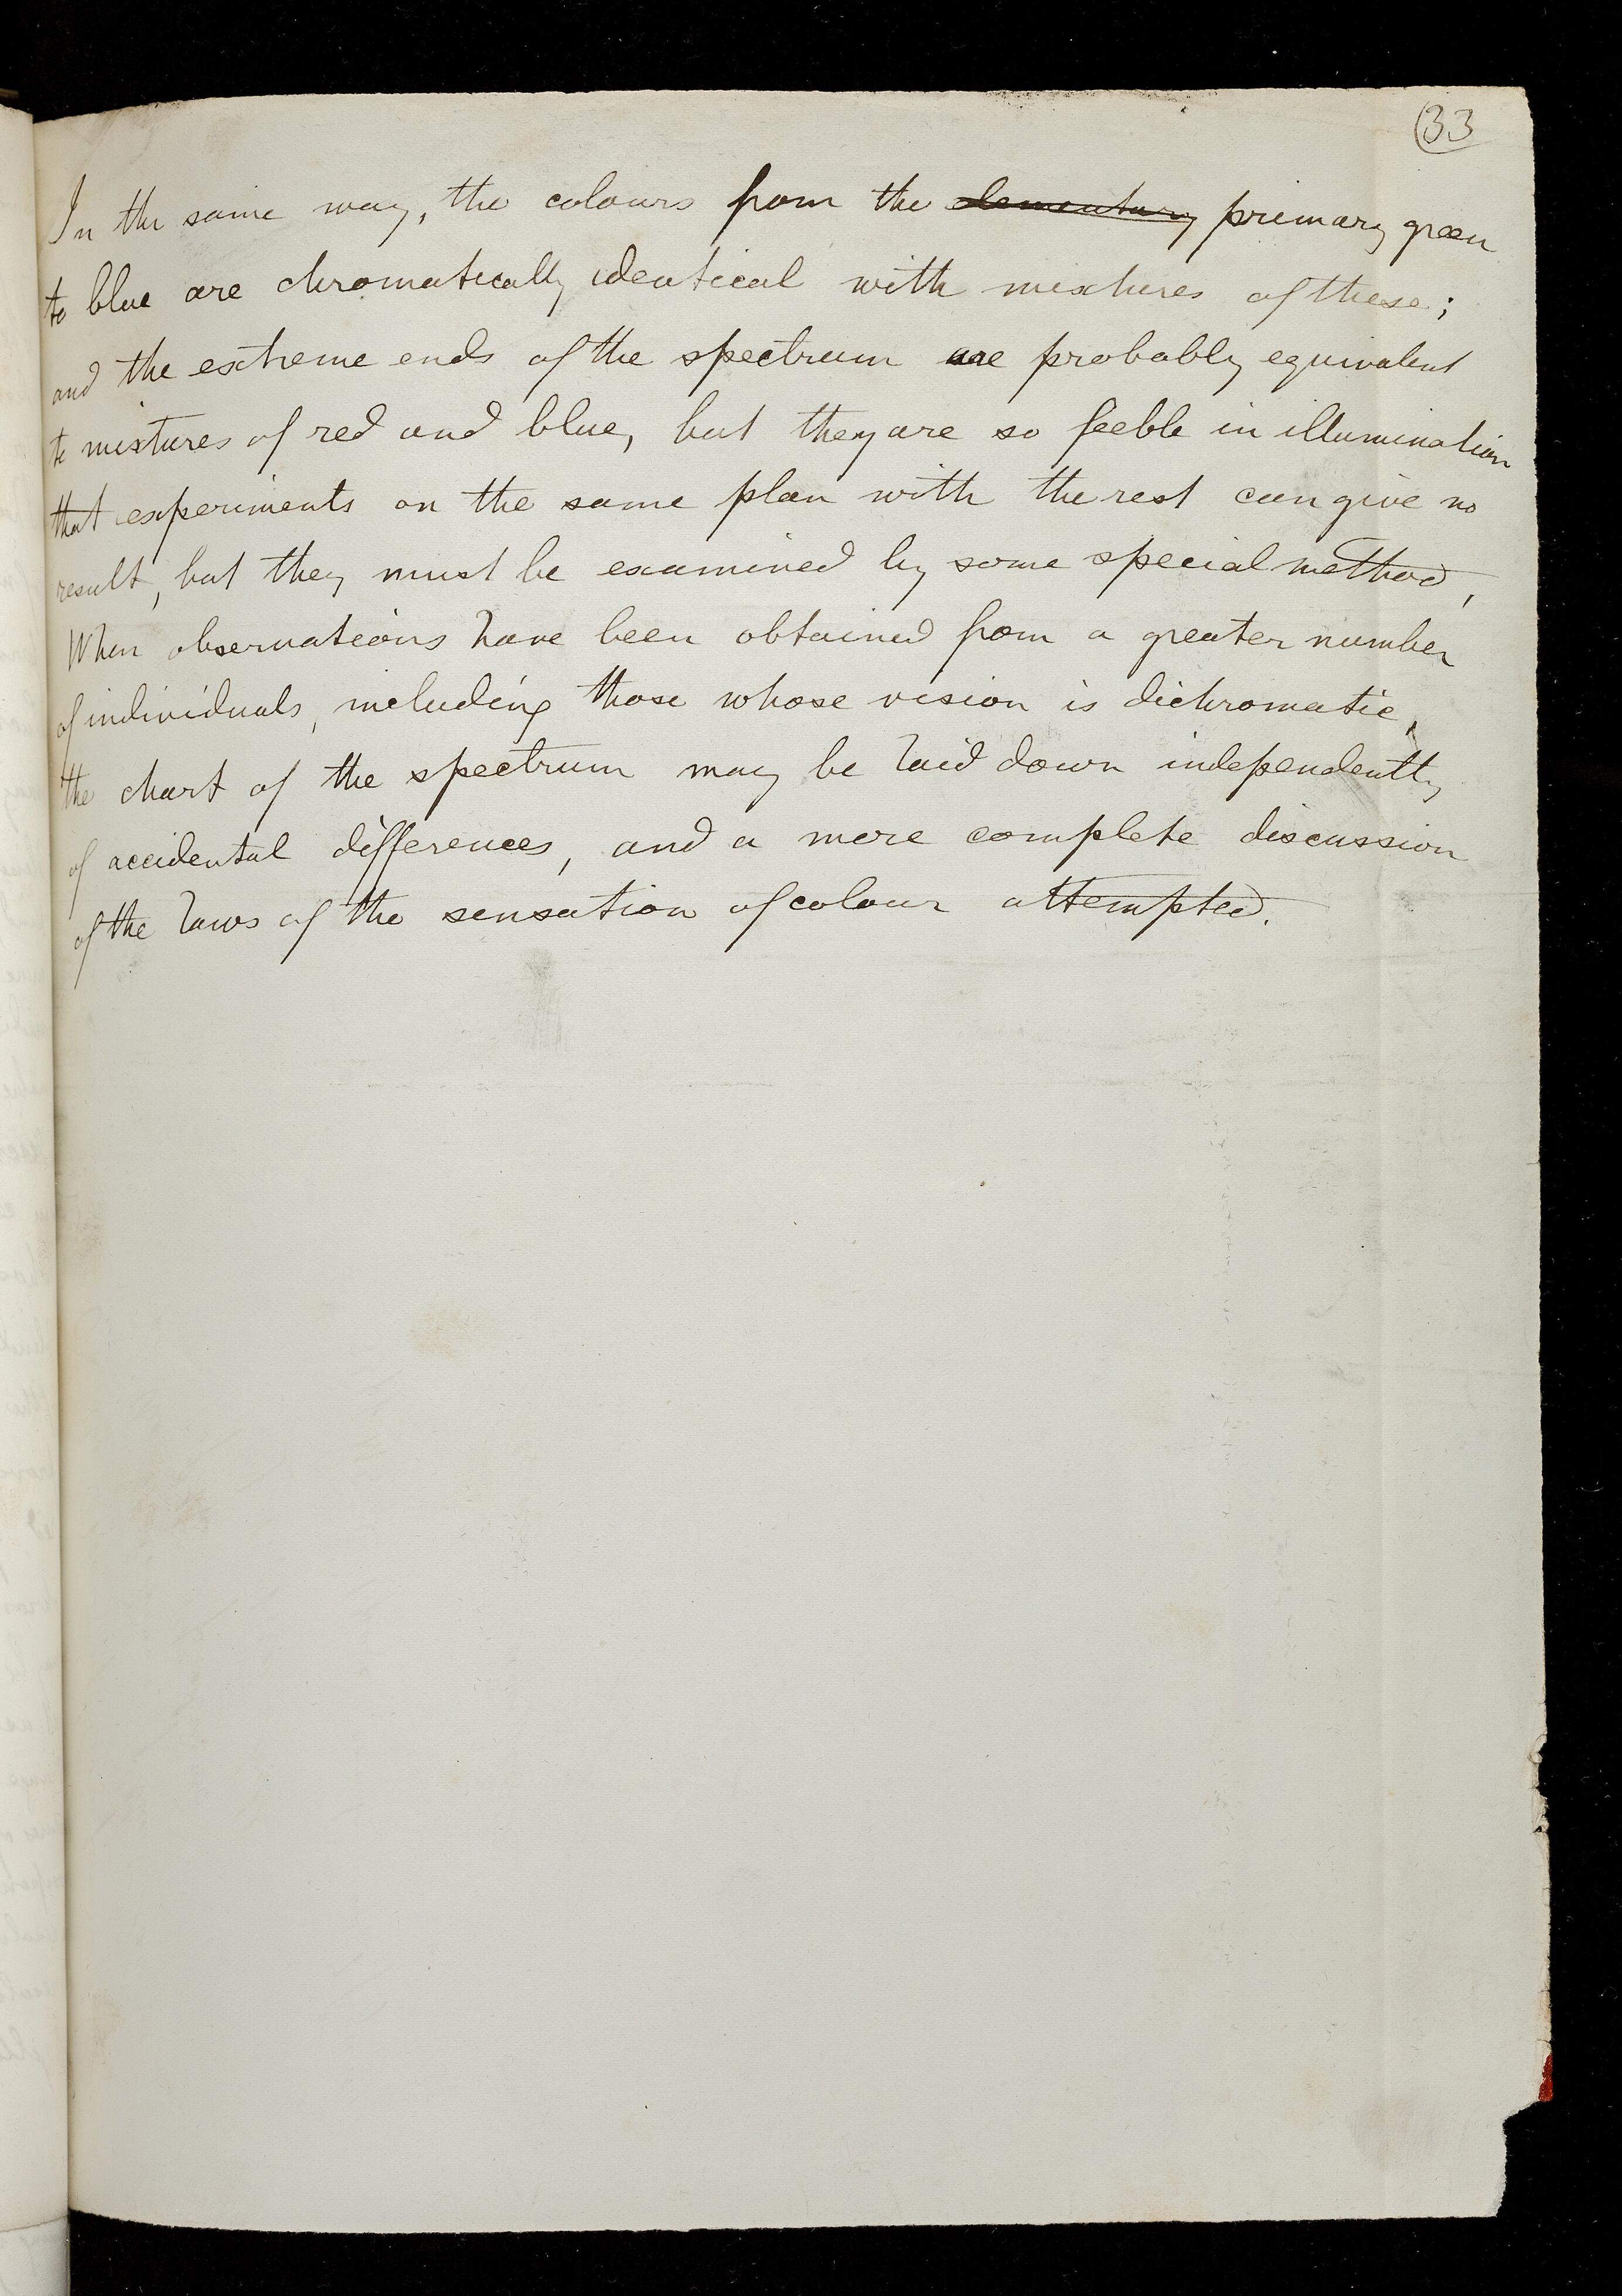 33
In the same way, the colours from the elementary primary green
to blue are chromatically identical with mixtures of these;
and the extreme ends of the spectrum are probably equivalent
to mixtures of red and blue, but they are so feeble in illumination
that experiments on the same plan with the rest can give no
result, but they must be examined by some special method,
When observations have been obtained from a greater number
of individuals, including those whose vision is dichromatic,
the chart of the spectrum may be laid down independently
of accidental differences, and a more complete discussion
of the laws of the sensation of colour attempted.